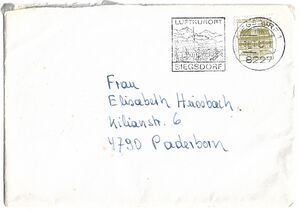 LUFTKURORT
SIEGSDORF
8227
Frau
Elisabeth Huesbach
Kilianstr. 6
4790 Paderborn